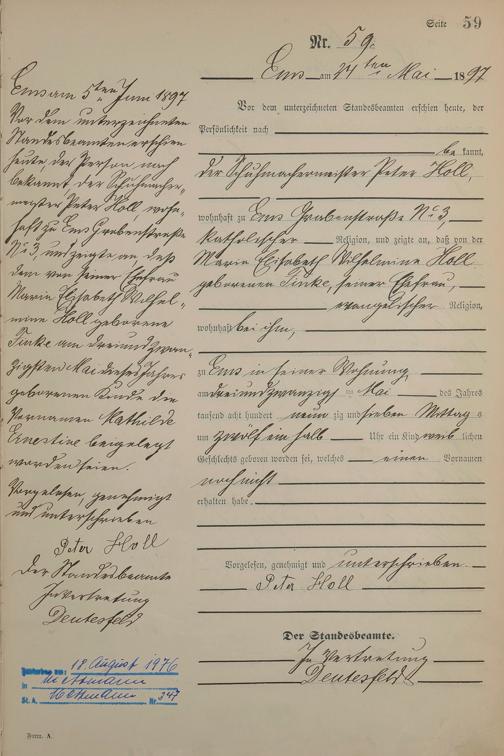 Seite 59
Nr. 59.
Ems am 24ten Mai 1897
Vor dem unterzeichneten Standesbeamten erschien heute, der
Persönlichkeit nach
be kannt,
der Schuhmachermeister Peter Holl,
wohnhaft zu Ems Grabenstraße No 3,
katholischer Religion, und zeigte an, daß von der
Maria Elisabeth Wilhelmine Holl
geborenen Finke, seiner Ehefrau,
evangelischer Religion,
wohnhaft bei ihm,
zu Ems in seiner Wohnung,
am dreiundzwanzigsten Mai des Jahres
tausend acht hundert neun zig und sieben Mittags
um zwölf ein halb Uhr ein Kind weib lichen
Geschlechts geboren worden sei, welches einen Vornamen
noch nicht
erhalten habe.
Vorgelesen, genehmigt und unterschrieben
Peter Holl
Der Standesbeamte.
In Vertretung
Deutesfeld
Ems am 5ten Juni 1897
Vor dem unterzeichneten
Standesbeamten erschien
heute, der Person nach
bekannt, der Schuhmacher-
meister Peter Holl, wohn-
haft zu Ems Grabenstraße
No 3, und zeigte an, daß
dem von seiner Ehefrau
Maria Elisabeth Wilhel-
mine Holl geborene
Finke am dreiundzwan-
zigsten Mai dieses Jahres
geborenen Kinde die
Vornamen Mathilde
Ernestine beigelegt
worden seien.
Vorgelesen, genehmigt
und unterschrieben
Peter Holl
Der Standesbeamte
In Vertretung
Deutesfeld
am: 18. August 1976
in Mettmann
St. A. Mettmann Nr. 347
Form. A.